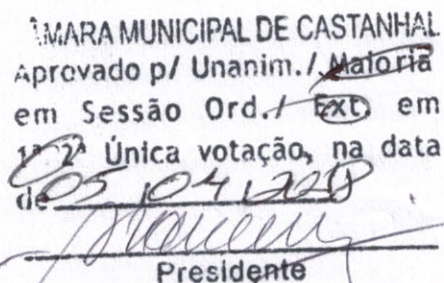 MARA MUNICIPAL DE CASTANHAL
Aprovado p/ Unanim./ Maioria
em Sessão Ord./ Ext. em
1ª 2ª Única votação, na data
de 05 / 04 /
Presidente